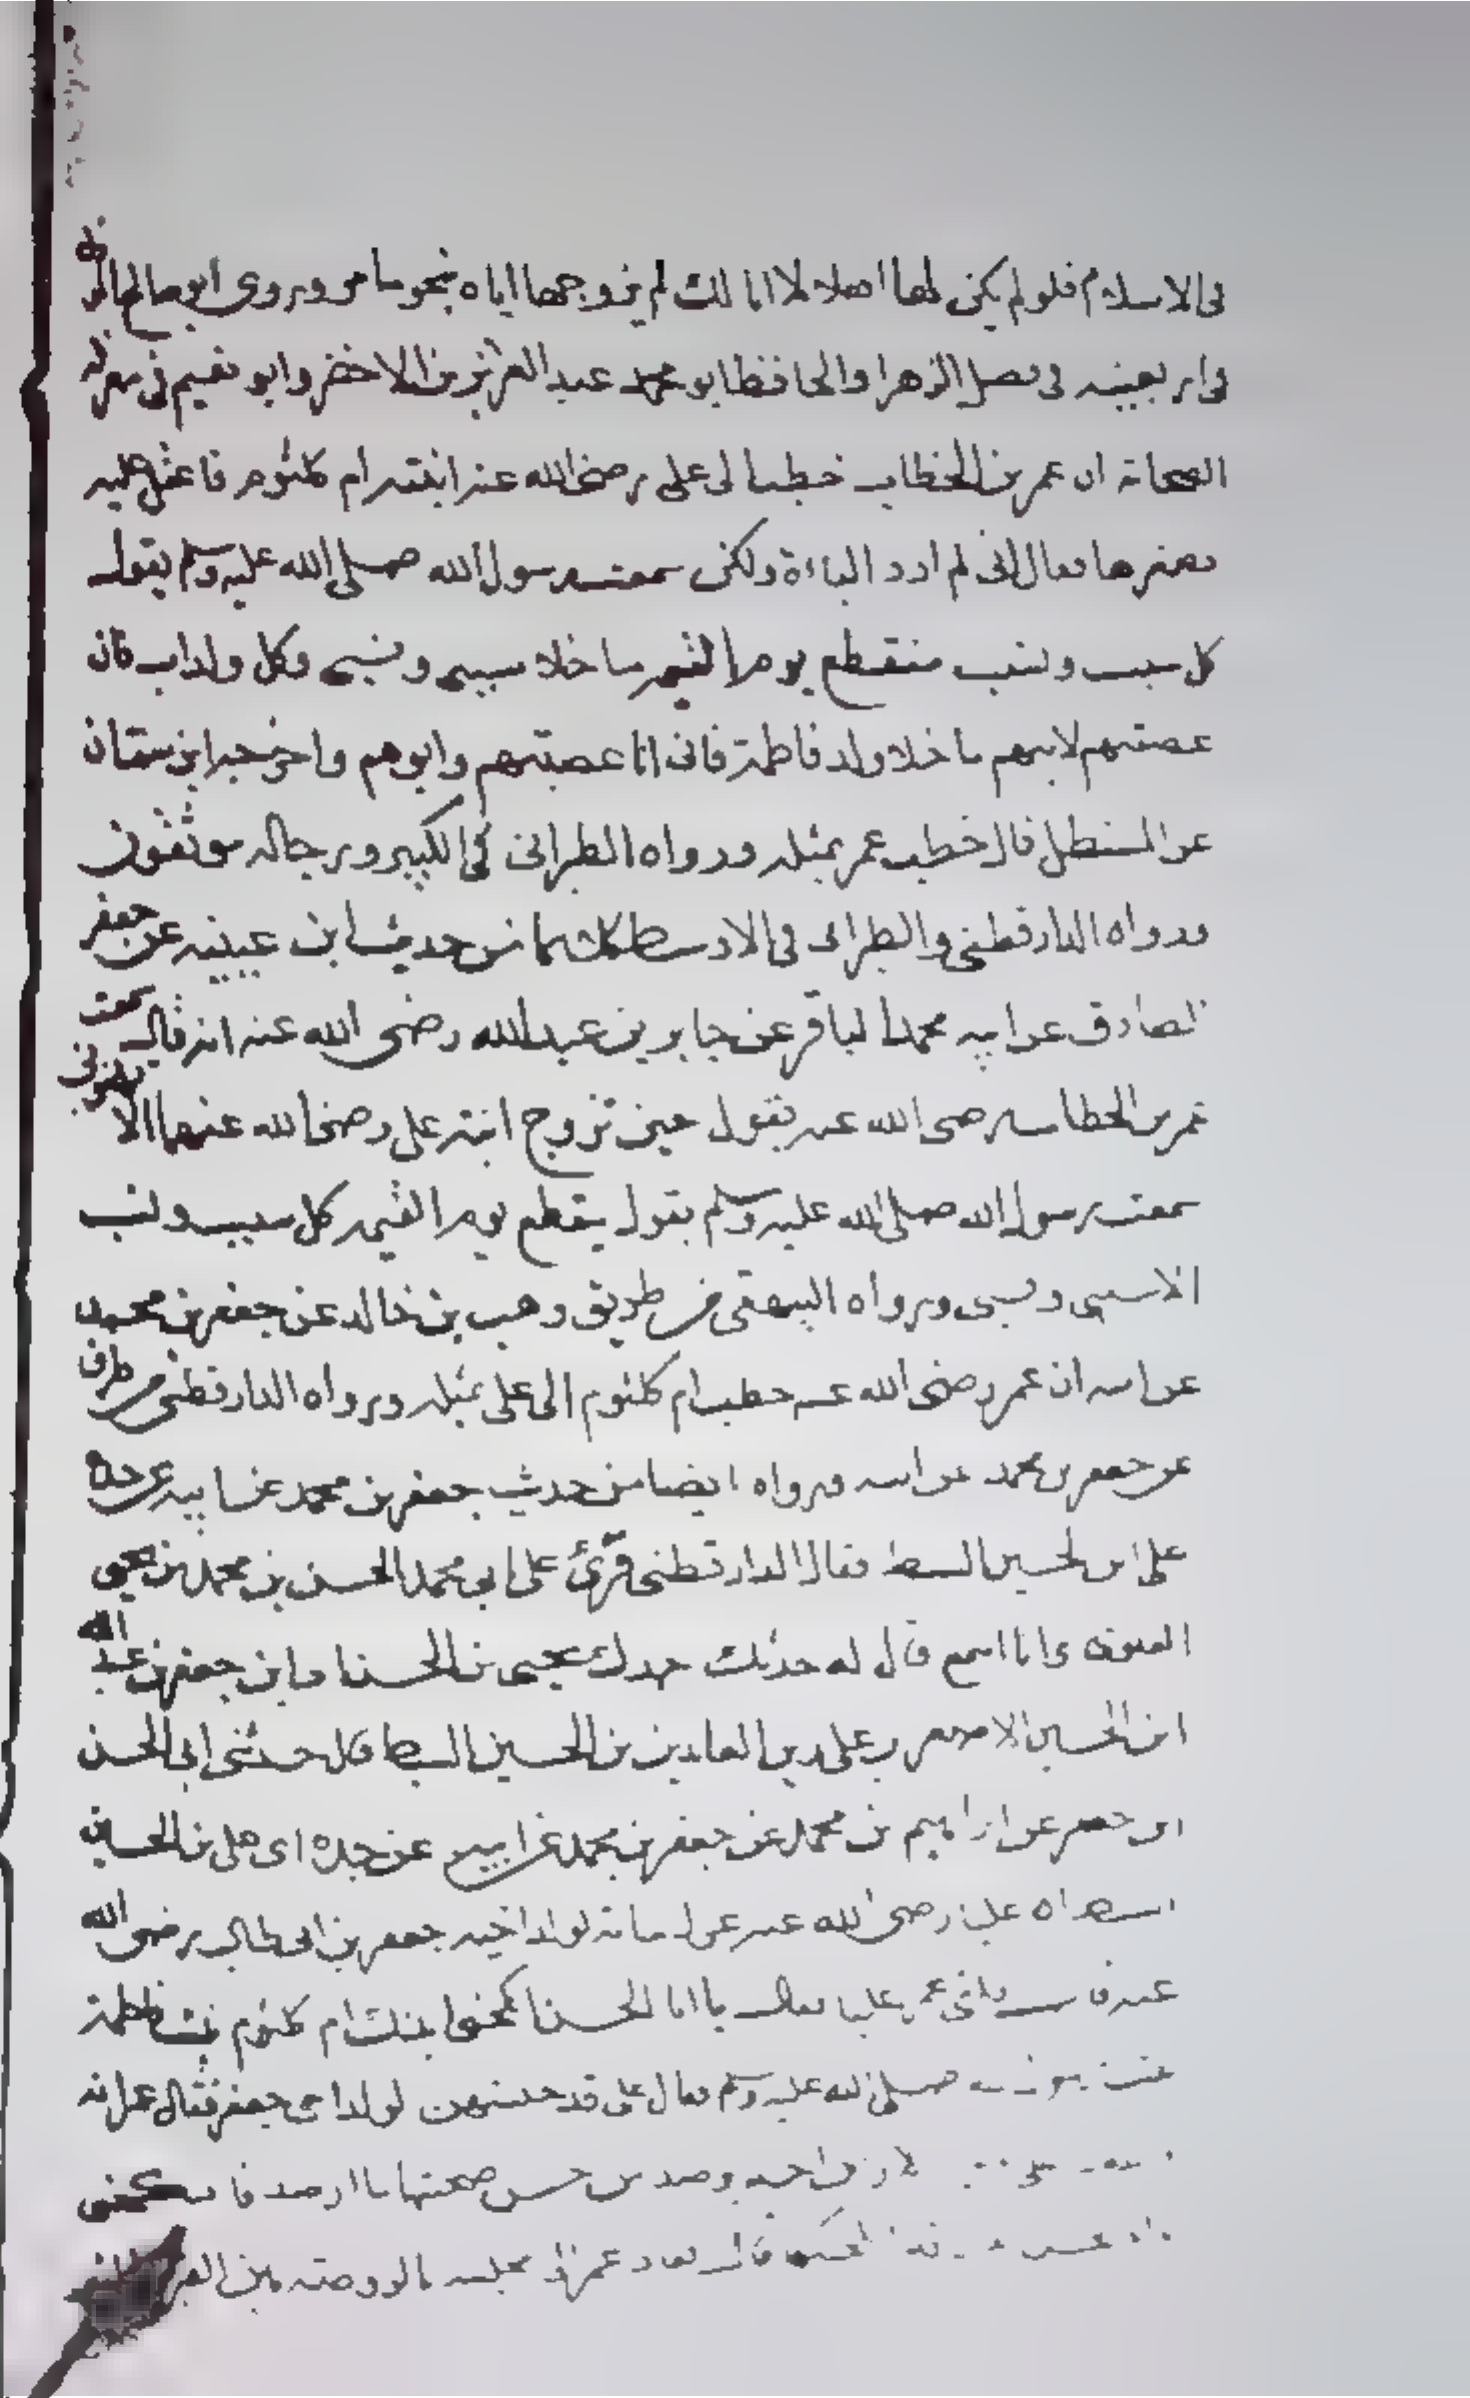 في الاسلام فلو لم يكن لها اهلا لا انا لك لم يزوجها اياه نحو ما مر وروى ابو صالح
في اربعينه في فضل الزهرا والحافظ ابو محمد عبد العزيز بن الاخضر وابو نعيم في معرفة
الصحابة ان عمر بن الخطاب خطب الى علي رضي الله عنه ابنته ام كلثوم فاعتل عليه
بصغرها فقال اني لم ارد الباءة ولكن سمعت رسول الله صلى الله عليه وسلم يقول
كل سبب ونسب منقطع يوم القيمة ما خلا سببي ونسبي وكل ولد اب فان
عصبتهم لابيهم ما خلا ولد فاطمة فاني انا عصبتهم وابوهم واخرجه ابن سمان
عن المستظل قال خطب عمر بمثله ورواه الطبراني في الكبير ورجاله موثقون
ورواه الدارقطني والطبراني في الاوسط كلاهما من حديث ابن عيينه عن جعفر
الصادق عن ابيه محمد الباقر عن جابر بن عبد الله رضي الله عنه انه قال سمعت
عمر بن الخطاب رضي الله عنه يقول حين تزوج ابنة علي رضي الله عنهما الا تهنوني
سمعت رسول الله صلى الله عليه وسلم يقول ينقطع يوم القيمة كل سبب ونسب
الا سببي ونسبي ورواه البيهقي من طريق وهيب بن خالد عن جعفر بن محمد
عن ابيه ان عمر رضي الله عنه خطب ام كلثوم الى علي بمثله ورواه الدارقطني من طرق
عن جعفر بن محمد عن ابيه ورواه ايضا من حديث جعفر بن محمد عن ابيه عن جده
علي ابن الحسين السبط فقال الدارقطني قرئ على ابي محمد الحسن بن محمد بن يحيى
العلوي وانا اسمع قال له حدثك جدك يحيى بن الحسن بن جعفر بن عبد الله
ابن الحسين الاصغر بن علي زين العابدين بن الحسين السبط قال حدثني ابي الحسن
ابن جعفر عن ابراهيم بن محمد عن جعفر بن محمد عن ابيه عن جده اي علي بن الحسين
علي رضي الله عنه عزل بناته لولد اخيه جعفر بن ابي طالب رضي الله
عنه عمر عليا فقال يا ابا الحسن انكحني ابنتك ام كلثوم بنت فاطمة
بنت رسول الله صلى الله عليه وسلم فقال علي قد حبستهن لولد اخي جعفر فقال عمر انه
من حسن صحبتها ما ارصد فانكحني
قال فعاد عمر الى مجلسه بالروضة بين القبر